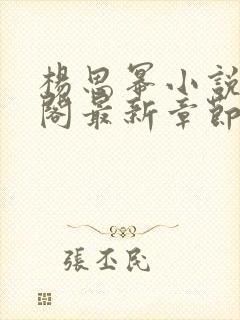 楊思冪小說
閣最新章節
張丕民